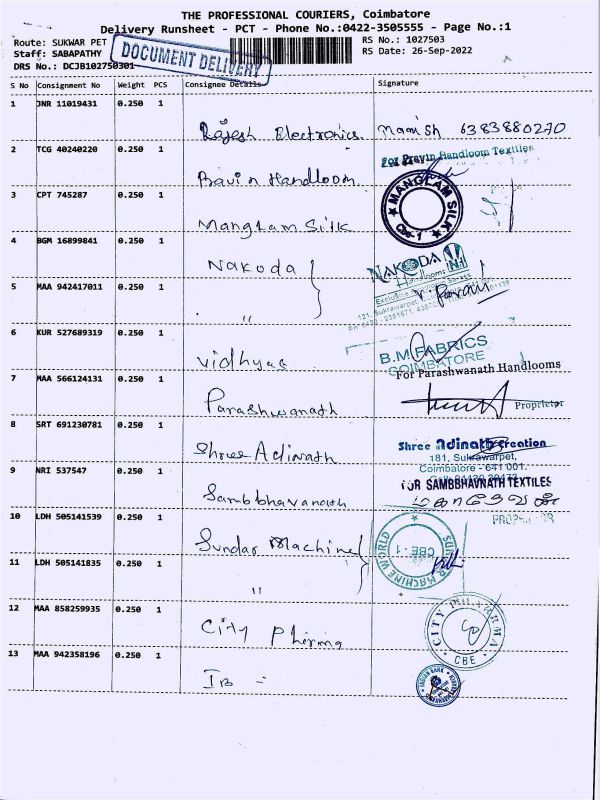 THE PROFESSIONAL COURIERS, Coimbatore
Delivery Runsheet - PCT - Phone No.:0422-3505555 - Page No.:1
Route: SUKWAR PET
RS No.: 1027503
Staff: SABAPATHY
DOCUMENT DELIVERY
RS Date: 26-Sep-2022
DRS No.: DCJB102750301
S No Consignment No Weight PCS Consignee Details Signature
1 JNR 11019431 0.250 1
Rajesh Electronics Manish 6383880270
2 TCG 40240220 0.250 1 For Pravin Handloom Textiles
Pravin Handloom
3 CPT 745287 0.250 1 MANGLAM SILK
CBE-1
Manglam Silk
4 BGM 16899841 0.250 1
Nakoda NAKODA
Handlooms
5 MAA 942417011 0.250 1
"
6 KUR 527689319 0.250 1 B.M. FABRICS
Vidhyas COIMBATORE
7 MAA 566124131 0.250 1 For Parashwanath Handlooms
Parashwanath Proprietor
8 SRT 691230781 0.250 1
Shree Adinath Shree Adinath Creation
181, Sukrawarpet,
Coimbatore - 641 001.
9 NRI 537547 0.250 1 FOR SAMBBHAVNATH TEXTILES
Sambbhavanath
10 LDH 505141539 0.250 1
Sundar Machine SUNDAR MACHINE WORLD
CBE - 1
11 LDH 505141835 0.250 1
"
12 MAA 858259935 0.250 1
City Pharma CITY PHARMA
CBE
13 MAA 942358196 0.250 1
IB - INDIAN BANK